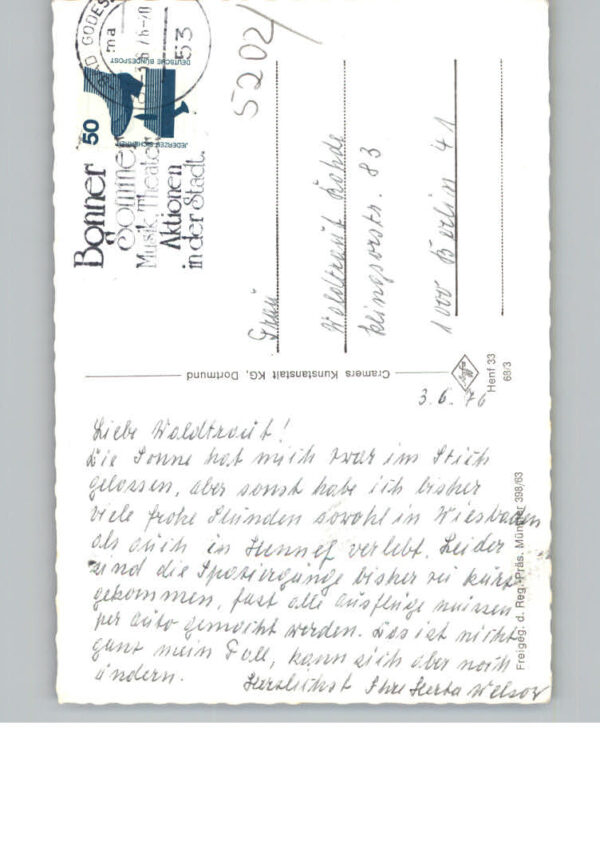 BAD GODES
ma
-3.6.76-20
53
DEUTSCHE BUNDESPOST
JEDERZEIT SICHERHEIT
50
Bonner
Sommer
Musik, Theater
Aktionen
in der Stadt.
5202
Frau
Waldtraut Rohde
Klingsorstr. 83
1000 Berlin 41
Cramers Kunstanstalt KG, Dortmund
Henf 33
68/3
Freigeg. d. Reg.-Präs. Münster 398/63
3.6.76
Liebe Waldtraut!
Die Sonne hat mich zwar im Stich
gelassen, aber sonst habe ich bisher
viele frohe Stunden sowohl in Wiesbaden
als auch in Hennef verlebt. Leider
sind die Spaziergänge bisher zu kurz
gekommen, fast alle Ausflüge müssen
per Auto gemacht werden. Das ist nicht
ganz mein Fall, kann sich aber noch
ändern. Herzlichst Ihre Herta